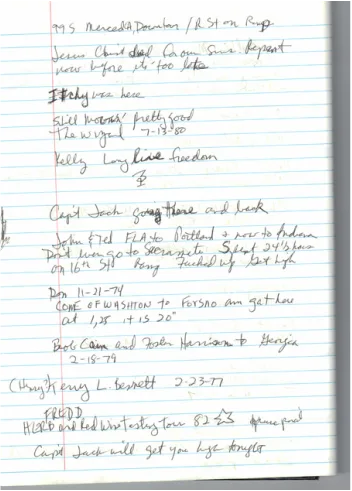 99 S Merced A Downtown / R St on Ramp
Jesus Christ died for our Sins Repent
now before its too late
Itchy was here
Still Movin' pretty good
The Wizard 7-13-80
Kelly Long live freedom
Capt Jack going there and back
John & Ted FLA to Portland & now to Indiana
Don't even go to Sacramento Spent 24 hours
on 16th St Fucked up Got high
Don 11-21-74
COME OF WASHTON to FORSNO am got here
at 1,25 it is 20"
Bob Cain and Foster Harrison to Georgia
2-18-79
Kenny L. Bennett 2-23-77
FREDD
and Red Wine Tasting tour 82
Capt Jack will get you high tonight